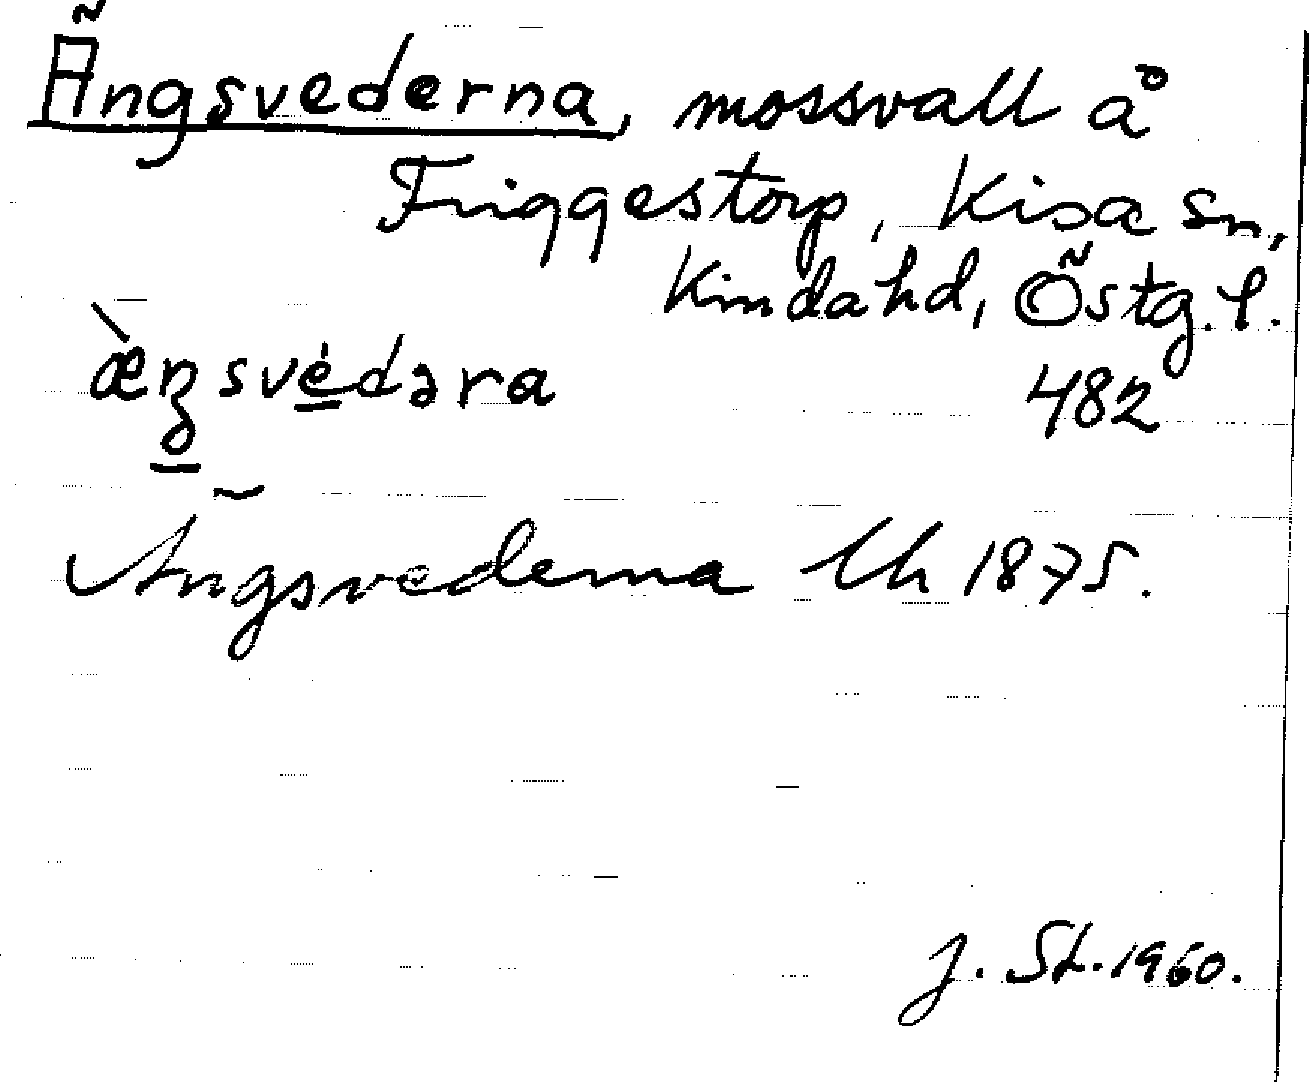 Ängsvederna, mossvall å
Friggestorp, Kisa sn,
Kinda hd, Östg. l.
482
Ängsvederna Uh 1875.
J. St. 1960.